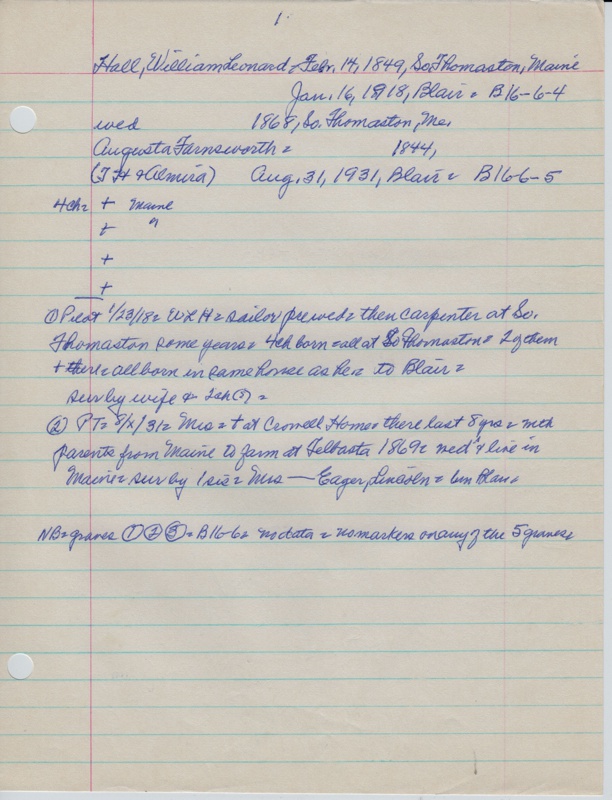 1.
Hall, William Leonard = Febr. 14, 1849, So. Thomaston, Maine
Jan. 16, 1918, Blair = B16-6-4
wed 1868, So. Thomaston, Me.
Augusta Farnsworth = 1844,
(J H & Almira) Aug. 31, 1931, Blair = B16-6-5
4ch = + Maine
+ "
+
+
① Pilot 1/23/18 = WLH = sailor prewed = then carpenter at So.
Thomaston some years = 4ch born = all at So Thomaston = 2 of them
+ there = all born in same house as he = to Blair =
sur by wife & 2ch(?) =
② PT = 9/ /31 = Mrs = + at Crowell Home = there last 8 yrs = with
parents from Maine to farm at Telbasta 1869 = wed & live in
Maine = sur by 1 sis = Mrs — Eager, Lincoln = bur Blair =
NB = graves ① ② ③ = B16-6 = no data = no markers on any of the 5 graves =